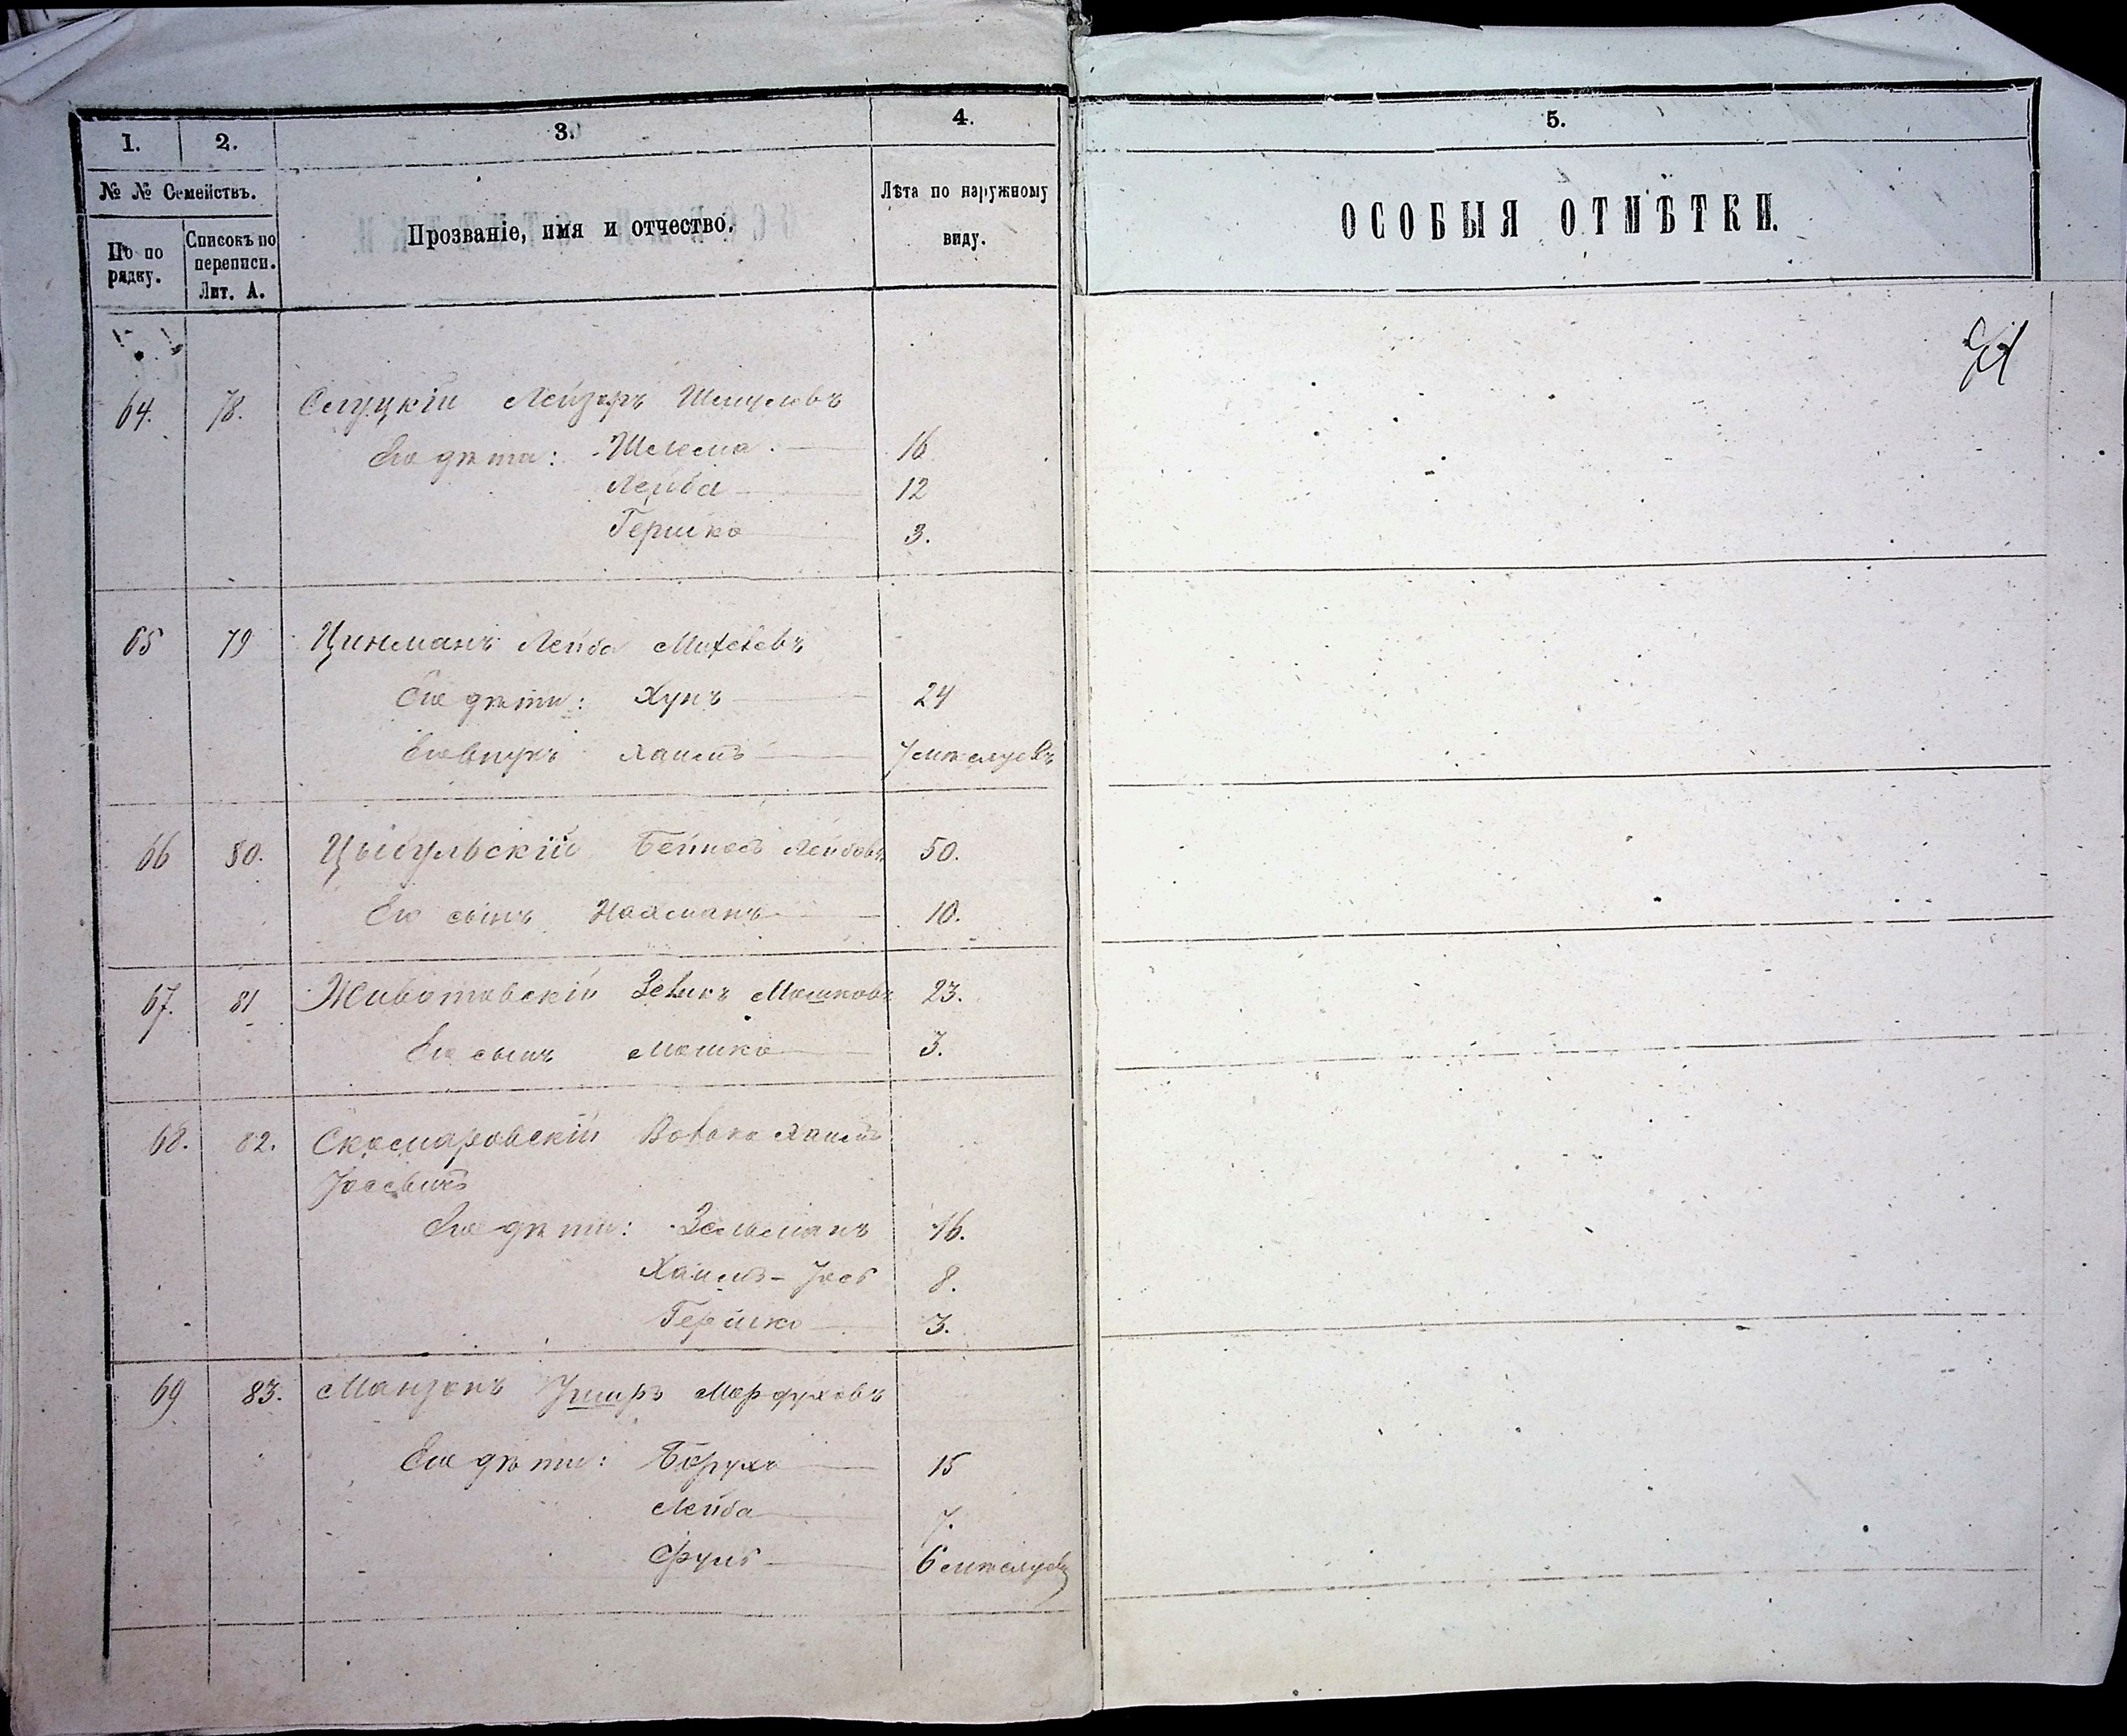 1. 2. 3. 4. 5.
№ № Семействъ.
По по рядку. Списокъ по переписи. Лит. А.
Прозваніе, имя и отчество.
Лѣта по наружному виду.
ОСОБЫЯ ОТМѢТКИ.
64. 78. Слуцкій Лейзоръ Шмулевъ
Его дѣти: Шлема 16
Лейба 12
Гершко 3.
65 79 Цинманъ Лейба
Его дѣти: Хунъ 24
Его внукъ Хаимъ 7 мѣсяцевъ
66 80. Цыбульскій Бейносъ Лейбовъ 50.
Его сынъ Нахманъ 10.
67. 81 Животовскій Мошковъ 23.
Его сынъ Мошко 3.
68. 82. Скомаровскій Хаимъ
Іосевъ
Его дѣти: Зельманъ 16.
Хаимъ-Іось 8.
Гершко 3.
69 83. Манзонъ Мордуховъ
Его дѣти: Борухъ 15
Лейба 7.
Фуль 6 мѣсяцевъ